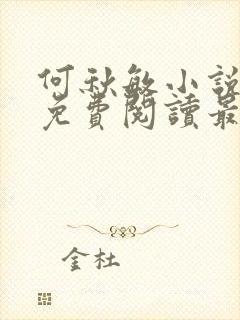 何秋敏小說
免費閱讀最
金杜